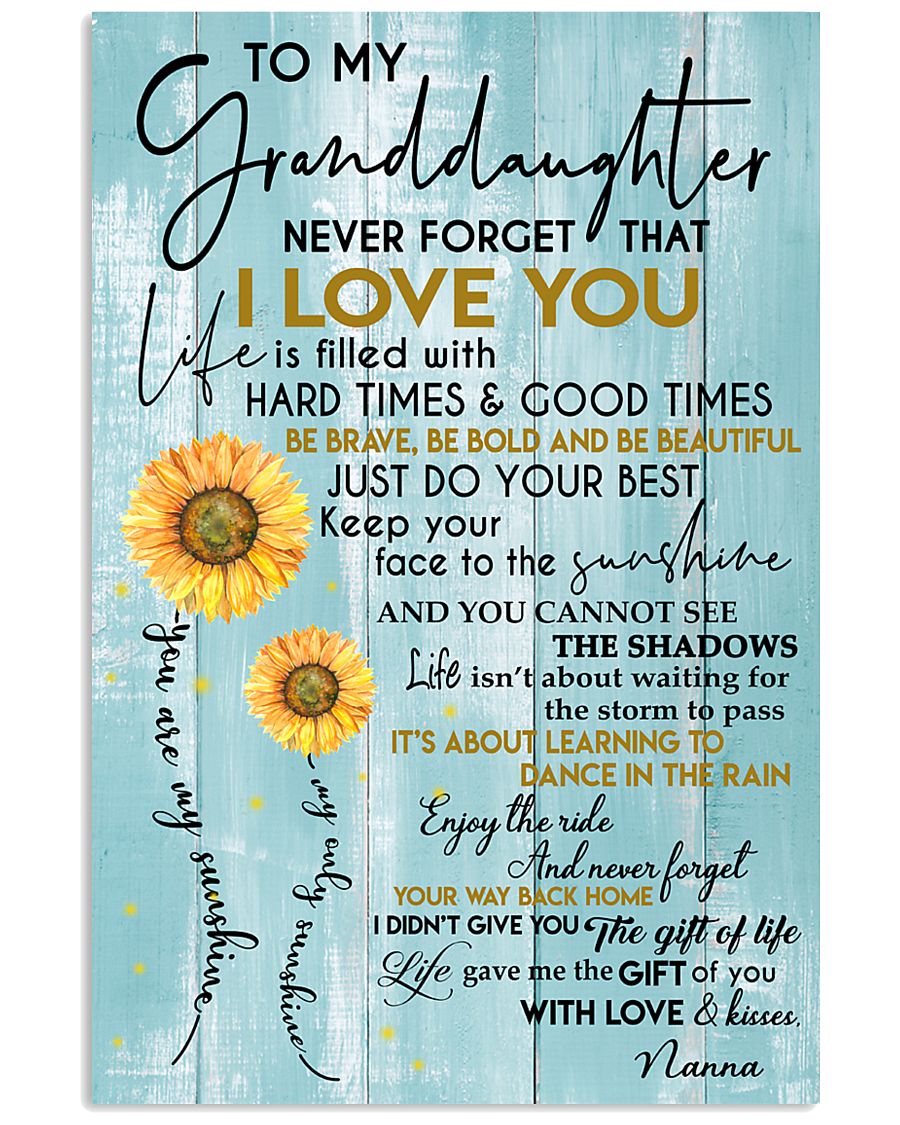 TO MY
Granddaughter
NEVER FORGET THAT
I LOVE YOU
Life is filled with
HARD TIMES & GOOD TIMES
BE BRAVE, BE BOLD AND BE BEAUTIFUL
JUST DO YOUR BEST
Keep your
face to the sunshine
AND YOU CANNOT SEE
THE SHADOWS
Life isn't about waiting for
the storm to pass
IT'S ABOUT LEARNING TO
DANCE IN THE RAIN
Enjoy the ride
And never forget
YOUR WAY BACK HOME
I DIDN'T GIVE YOU The gift of life
Life gave me the GIFT of you
WITH LOVE & kisses,
Nanna
you are my sunshine
my only sunshine